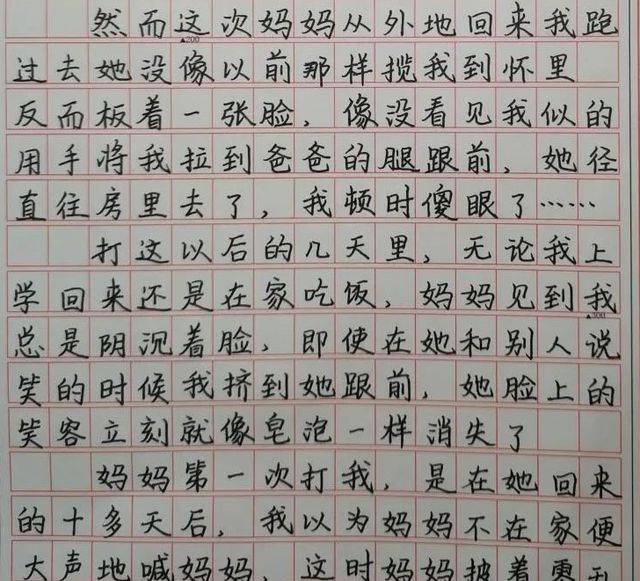 然而这次妈妈从外地回来我跑
▲200
过去她没像以前那样揽我到怀里
反而板着一张脸，像没看见我似的
用手将我拉到爸爸的腿跟前，她径
直往房里去了，我顿时傻眼了……
打这以后的几天里，无论我上
学回来还是在家吃饭，妈妈见到我
▲300
总是阴沉着脸，即使在她和别人说
笑的时候我挤到她跟前，她脸上的
笑容立刻就像皂泡一样消失了
妈妈第一次打我，是在她回来
的十多天后，我以为妈妈不在家便
大声地喊妈妈，这时妈妈披着